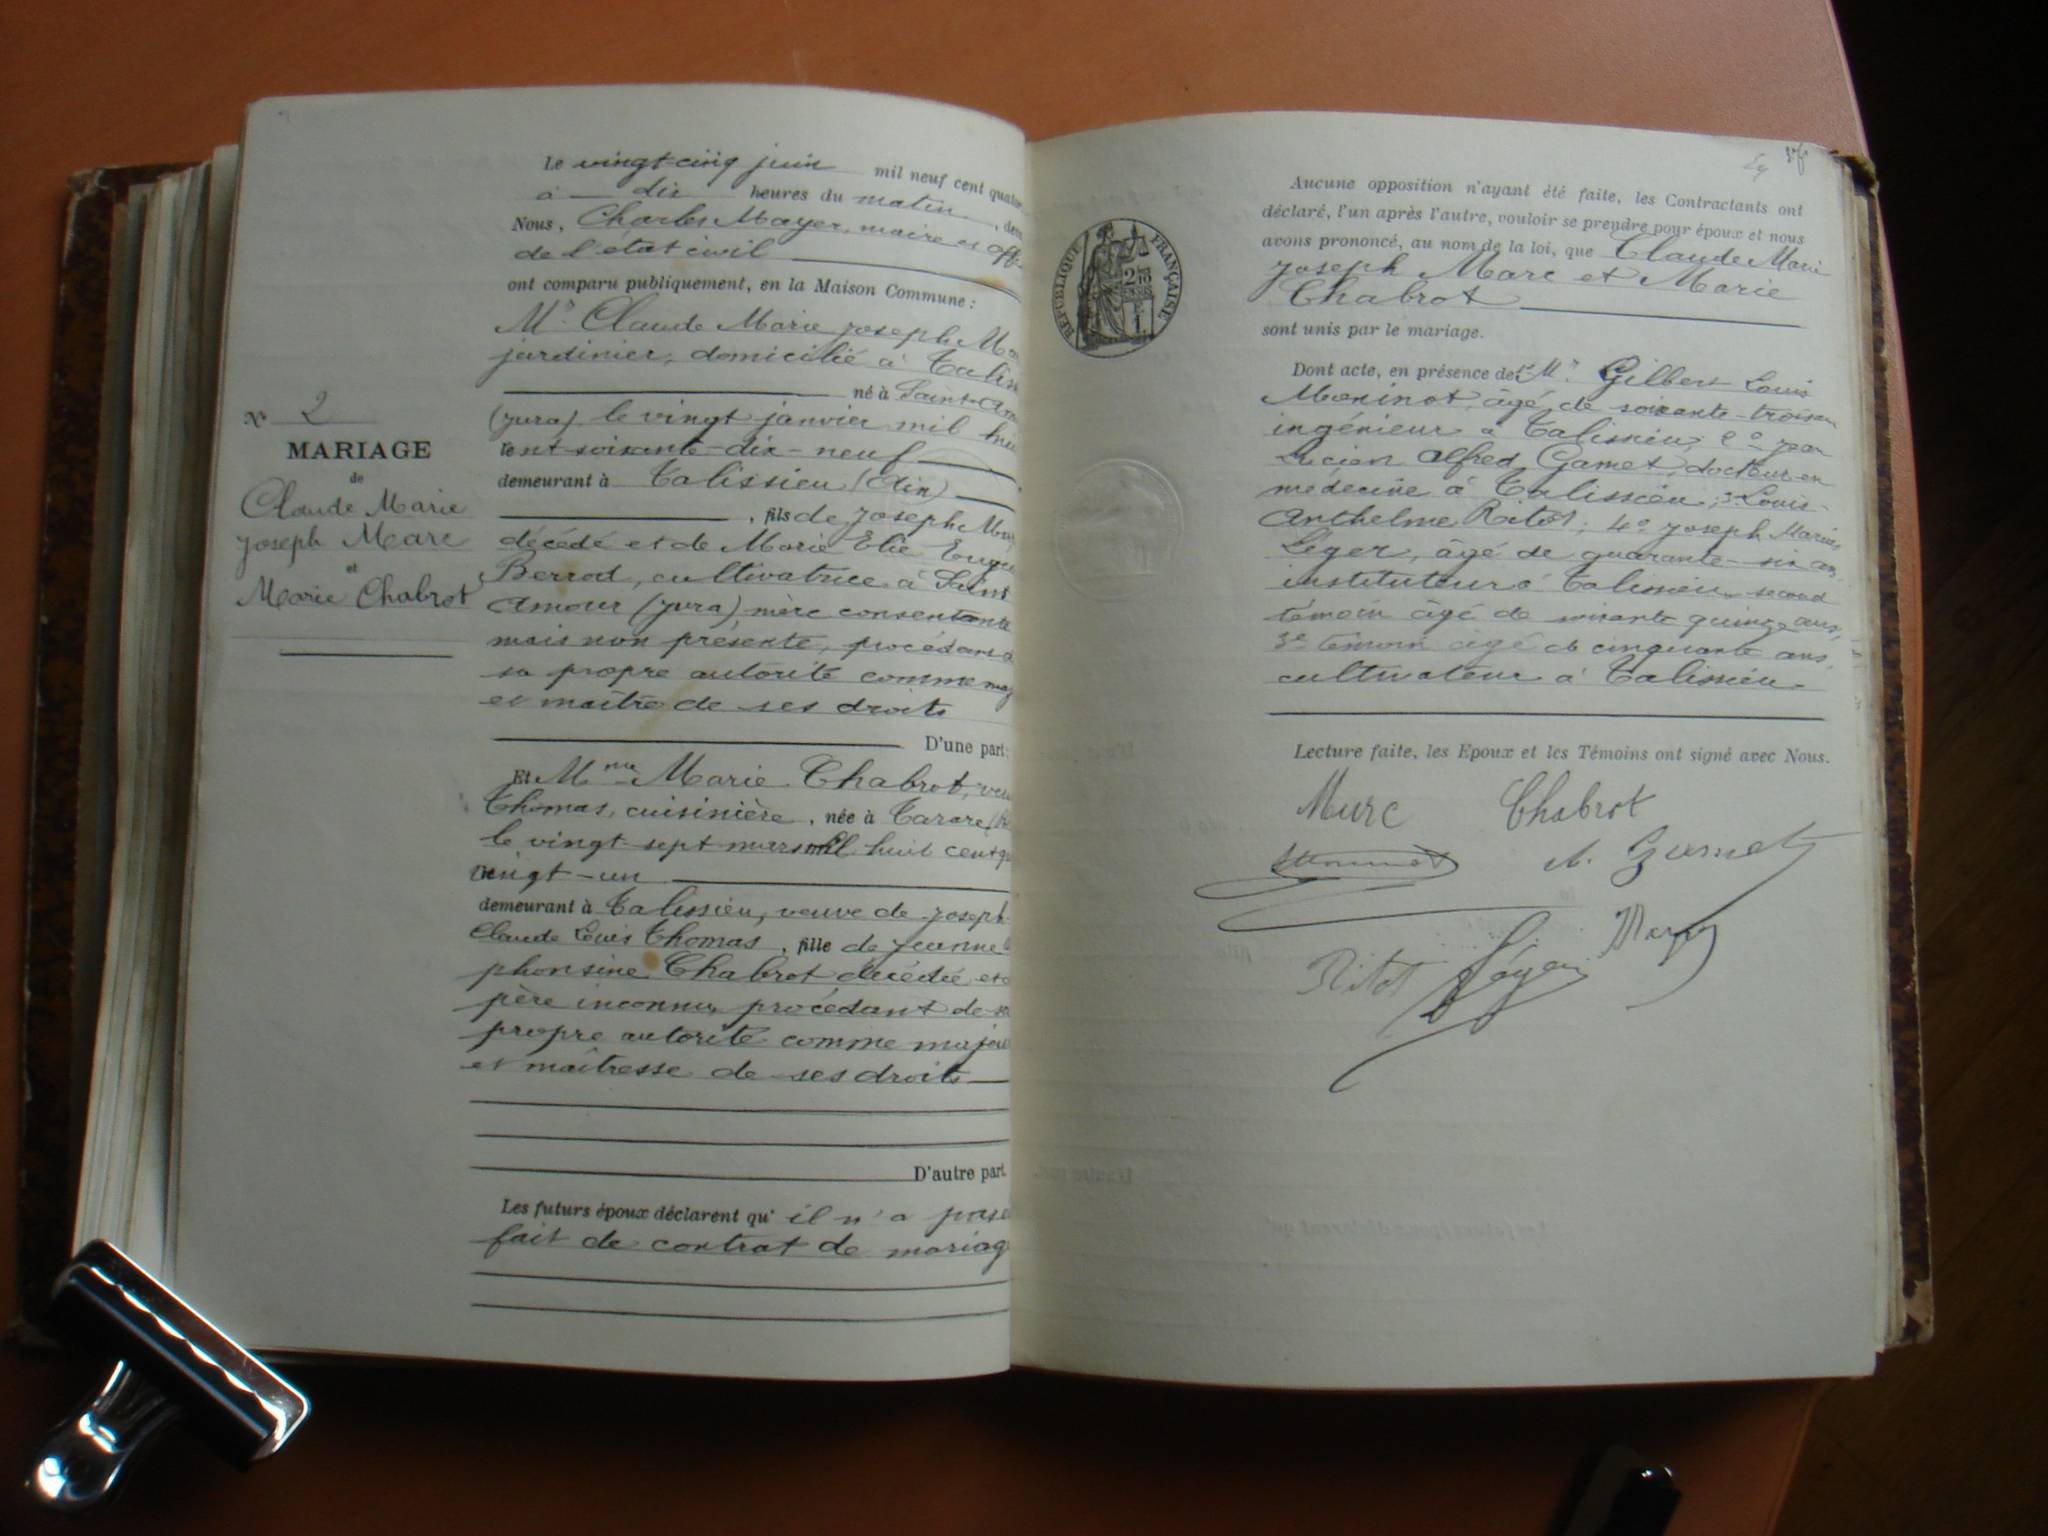 Le vingt-cinq juin mil neuf cent quator
à dix heures du matin, dev
Nous, Charles Mayer, maire et off
de l'état civil
ont comparu publiquement, en la Maison Commune :
Mr Claude Marie Joseph Ma
jardinier, domicilié à Talis
né à Saint-Am
(Jura) le vingt janvier mil hui
cent soixante-dix-neuf
demeurant à Talissieu (Ain)
, fils de Joseph
décédé et de Marie Elie Eugé
Berrod, cultivatrice à Saint
Amour (Jura) mère consentante
mais non présente, procédant d
sa propre autorité comme maj
et maître de ses droits
D'une part;
Et Mme Marie Chabrot, veu
Thomas, cuisinière, née à Tarare (R
le vingt-sept mars mil huit cent qu
vingt-un
demeurant à Talissieu, veuve de Joseph
Claude Louis Thomas, fille de Jeanne
phonsine Chabrot décédée et d
père inconnu, procédant de s
propre autorité comme majeu
et maîtresse de ses droits
D'autre part.
Les futurs époux déclarent qu'il n'a pas é
fait de contrat de mariag
No 2
MARIAGE
de
Claude Marie
Joseph Marc
et
Marie Chabrot
RÉPUBLIQUE FRANÇAISE
Aucune opposition n'ayant été faite, les Contractants ont
déclaré, l'un après l'autre, vouloir se prendre pour époux et nous
avons prononcé, au nom de la loi, que Claude Marie
Joseph Marc et Marie
Chabrot
sont unis par le mariage.
Dont acte, en présence de 1° Mr Gilbert Louis
âgé de soixante-trois ans
ingénieur à Talissieu; 2° Jean
Lucien Alfred Gamet, docteur en
médecine à Talissieu; 3° Louis-
Anthelme Ritot; 4° Joseph Marius
Léger, âgé de quarante-six ans
instituteur à Talissieu, second
témoin âgé de soixante quinze ans,
3e témoin âgé de cinquante ans,
cultivateur à Talissieu
Lecture faite, les Epoux et les Témoins ont signé avec Nous.
Marc Chabrot
Gamet
Ritot